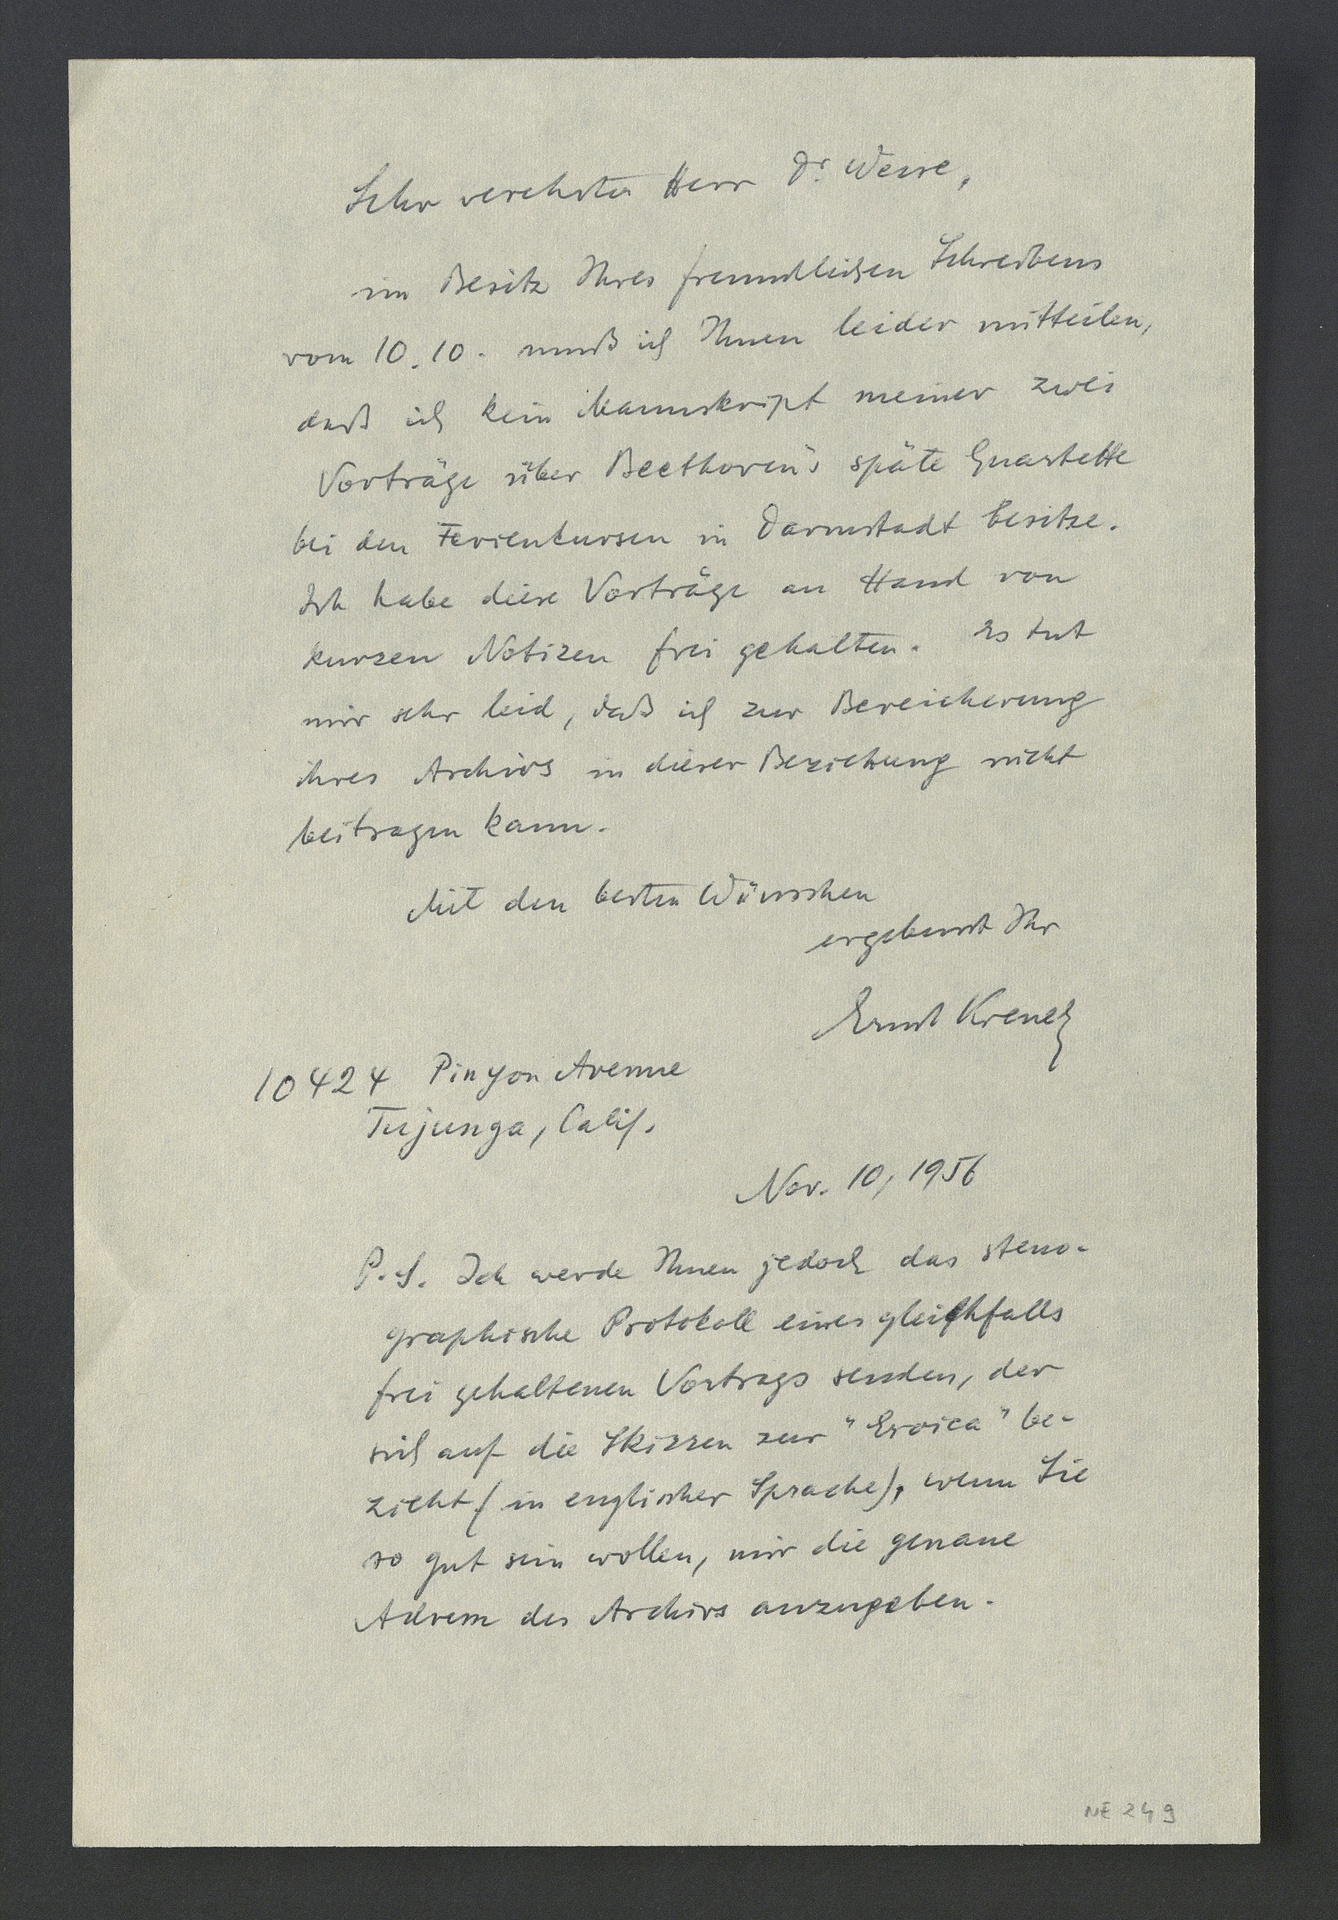 Sehr verehrter Herr Dr. Weise,
im Besitz Ihres freundlichen Schreibens
vom 10.10. muß ich Ihnen leider mitteilen,
daß ich kein Manuskript meiner zwei
Vorträge über Beethoven's späte Quartette
bei den Ferienkursen in Darmstadt besitze.
Ich habe diese Vorträge an Hand von
kurzen Notizen frei gehalten. Es tut
mir sehr leid, daß ich zur Bereicherung
ihres Archivs in dieser Beziehung nicht
beitragen kann.
Mit den besten Wünschen
ergebenst Ihr
Ernst Krenek
10424 Pinyon Avenue
Tujunga, Calif.
Nov. 10, 1956
P.S. Ich werde Ihnen jedoch das steno-
graphische Protokoll eines gleichfalls
frei gehaltenen Vortrags senden, der
sich auf die Skizzen zur "Eroica" be-
zieht (in englischer Sprache), wenn Sie
so gut sein wollen, mir die genaue
Adresse des Archivs anzugeben.
NE 249